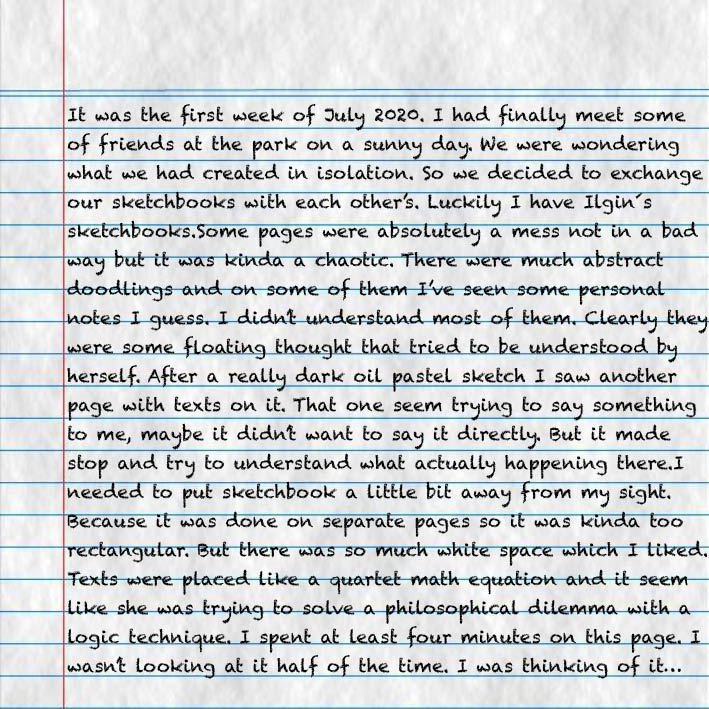 It was the first week of July 2020. I had finally meet some
of friends at the park on a sunny day. We were wondering
what we had created in isolation. So we decided to exchange
our sketchbooks with each other's. Luckily I have Ilgin´s
sketchbooks.Some pages were absolutely a mess not in a bad
way but it was kinda a chaotic. There were much abstract
doodlings and on some of them I've seen some personal
notes I guess. I didn't understand most of them. Clearly they
were some floating thought that tried to be understood by
herself. After a really dark oil pastel sketch I saw another
page with texts on it. That one seem trying to say something
to me, maybe it didn't want to say it directly. But it made
stop and try to understand what actually happening there.I
needed to put sketchbook a little bit away from my sight.
Because it was done on separate pages so it was kinda too
rectangular. But there was so much white space which I liked.
Texts were placed like a quartet math equation and it seem
like she was trying to solve a philosophical dilemma with a
logic technique. I spent at least four minutes on this page. I
wasn't looking at it half of the time. I was thinking of it...